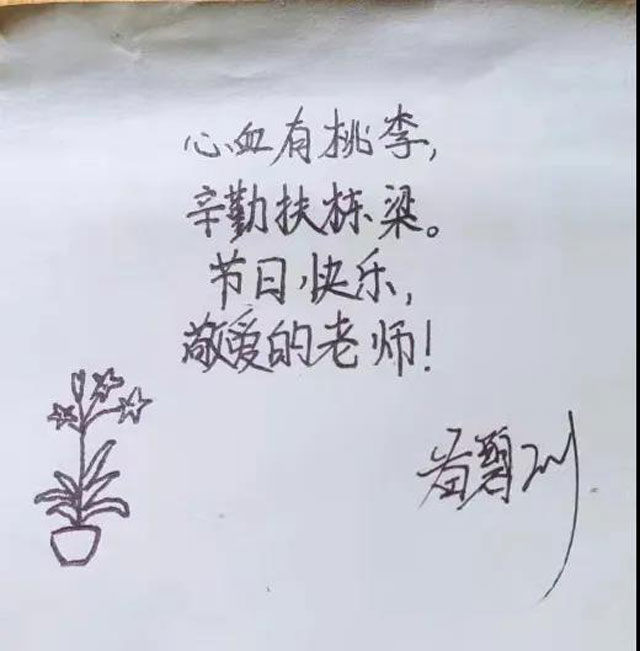 心血有桃李，
辛勤扶栋梁。
节日快乐，
敬爱的老师！